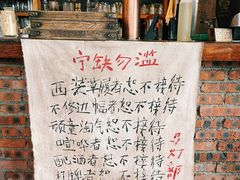 宁缺勿滥
西装革履者恕不接待
不修边幅者恕不接待
顽童淘气恕不接待
喧哗者恕不接待
配酒者恕不接待
者恕不接待